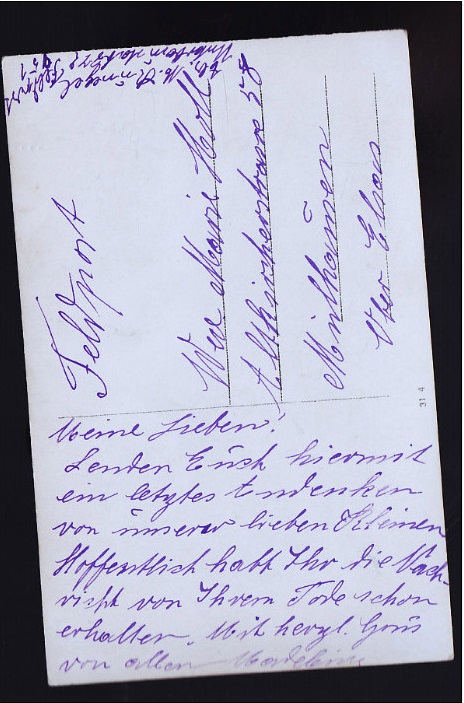 Feldpost
Wwe Marie Koll
Altkircherstrasse 58
Mülhausen
Ober Elsas
31 4
Meine Lieben!
Senden Euch hiermit
ein letztes Andenken
von ünserer lieben Kleinen
Hoffentlich habt Ihr die Nach-
richt von Ihrem Tode schon
erhalten. Mit herzl. Grüs
von allen Madeleine